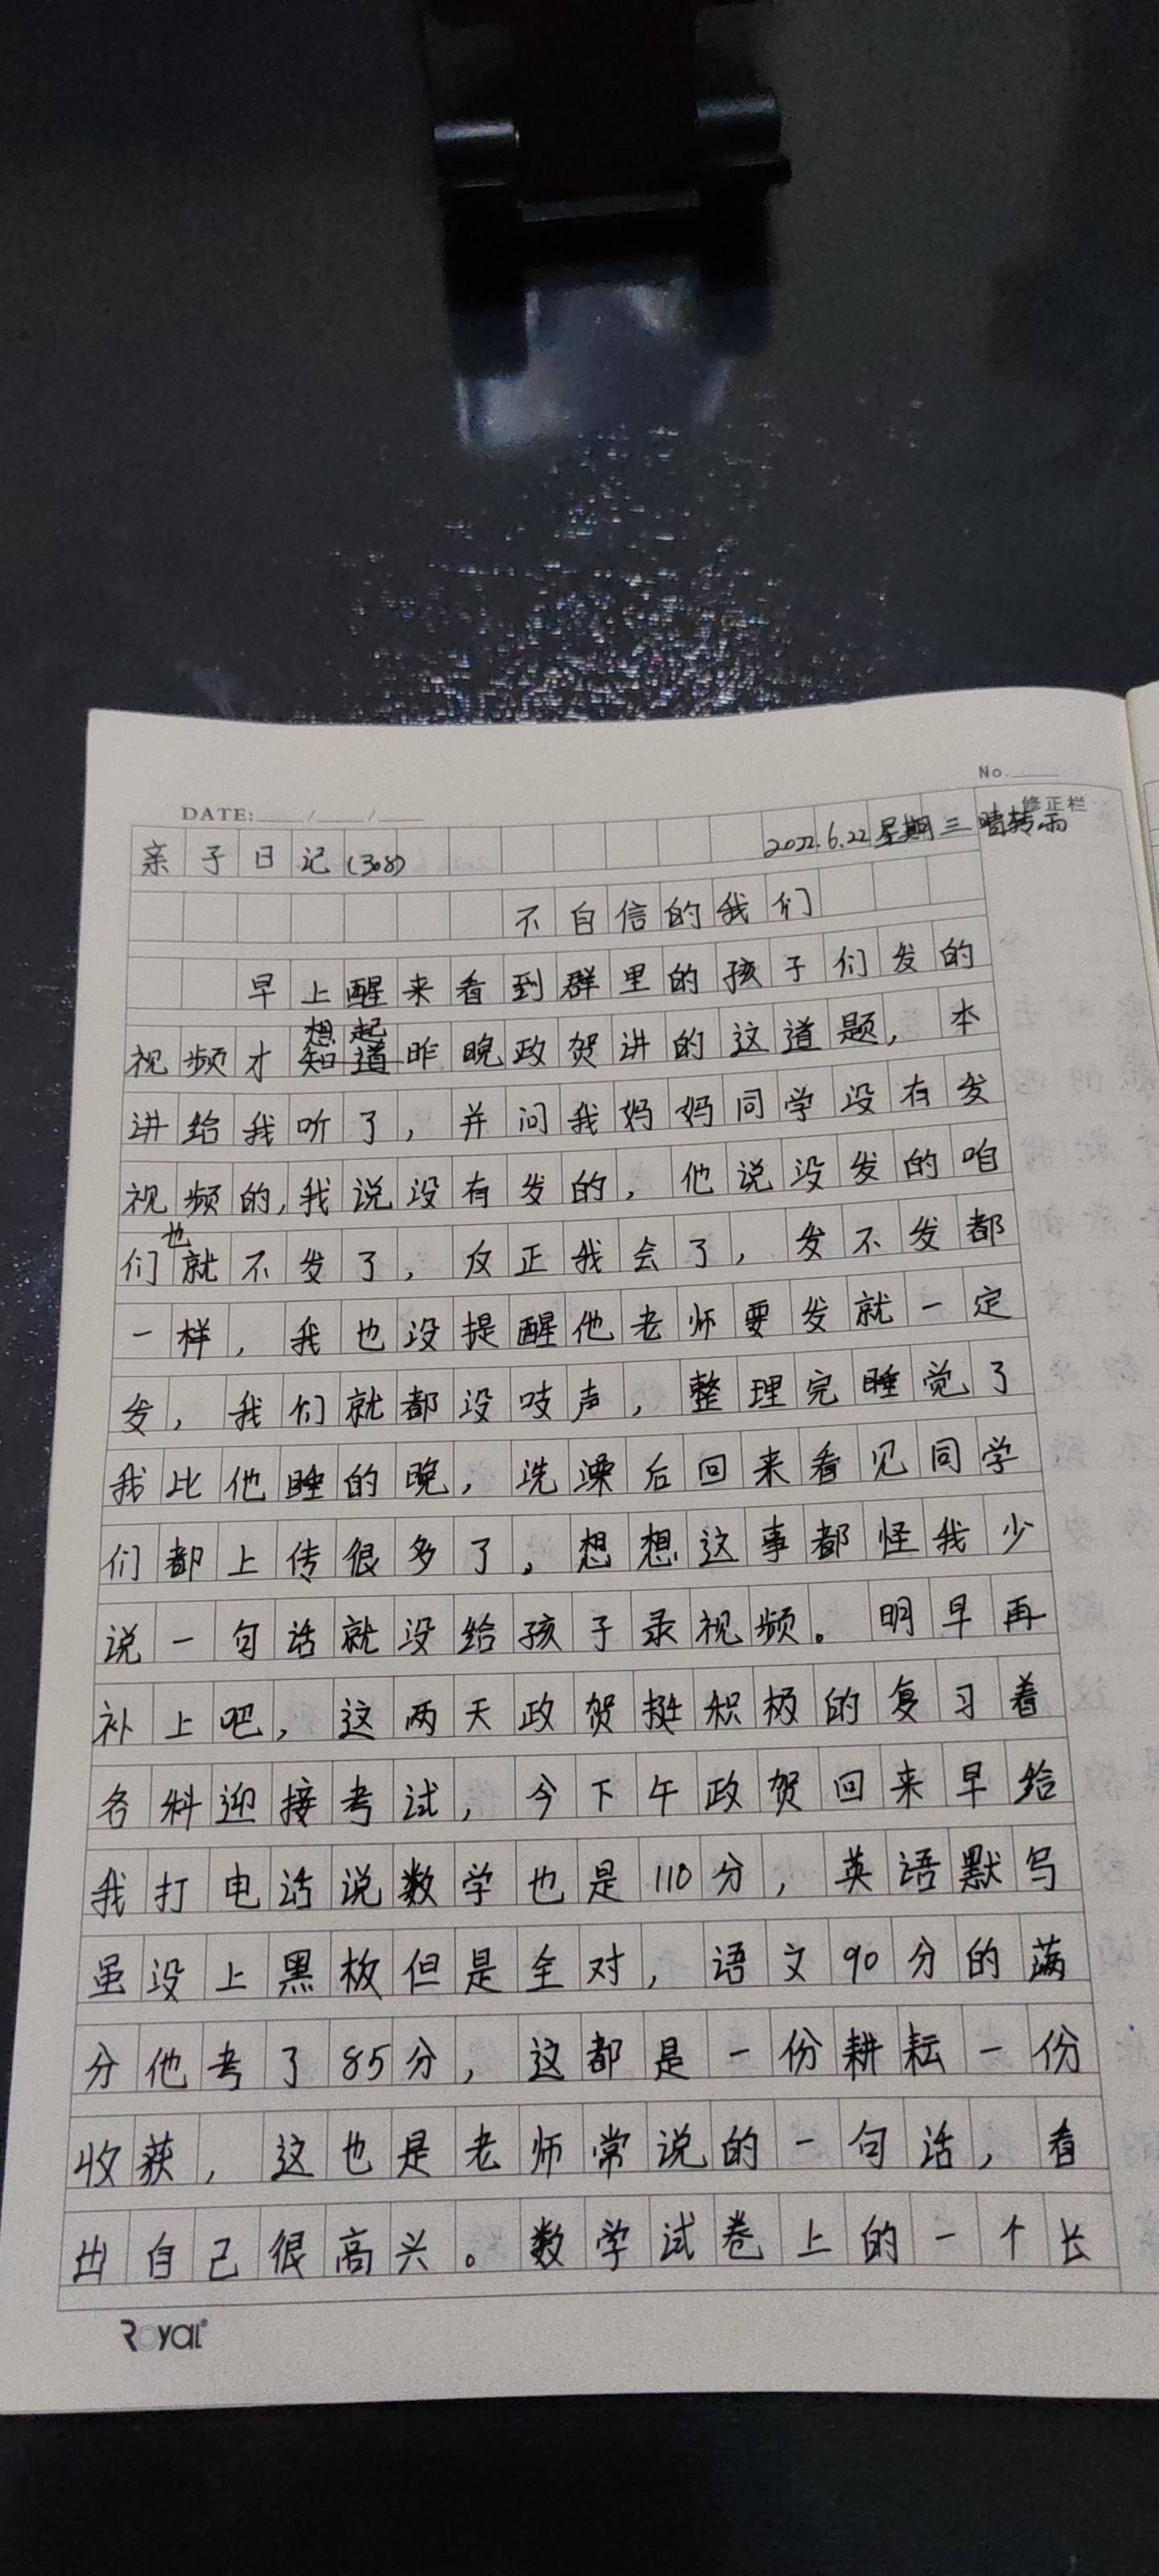 No.
DATE: / /
修正栏
亲子日记(308) 2022.6.22 星期三 晴转雨
不自信的我们
早上醒来看到群里的孩子们发的
想起
视频才知道昨晚政贺讲的这道题，本
讲给我听了，并问我妈妈同学没有发
视频的,我说没有发的，他说没发的咱
也
们就不发了，反正我会了，发不发都
一样，我也没提醒他老师要发就一定
发，我们就都没吱声，整理完睡觉了
我比他睡的晚，洗澡后回来看见同学
们都上传很多了，想想这事都怪我少
说一句话就没给孩子录视频。明早再
补上吧，这两天政贺挺积极的复习着
各料迎接考试，今下午政贺回来早给
我打电话说数学也是110分，英语默写
虽没上黑板但是全对，语文90分的满
分他考了85分，这都是一份耕耘一份
收获，这也是老师常说的一句话，看
出自己很高兴。数学试卷上的一个长
Royal